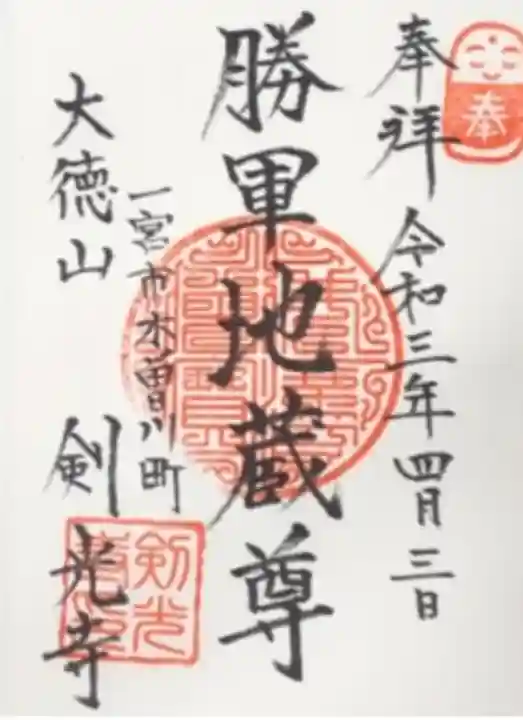 奉
奉拝 令和三年四月三日
勝軍地蔵尊
一宮市木曽川町
大徳山 剣光寺
剣光